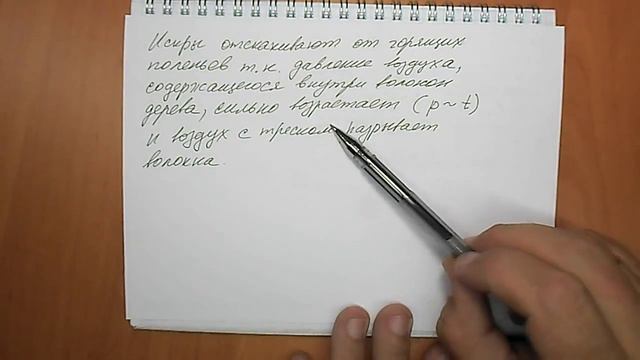 Искры отскакивают от горящих
поленьев т.к. давление воздуха,
содержащегося внутри волокон
дерева, сильно возрастает (p ~ t)
и воздух с треском разрывает
волокна.